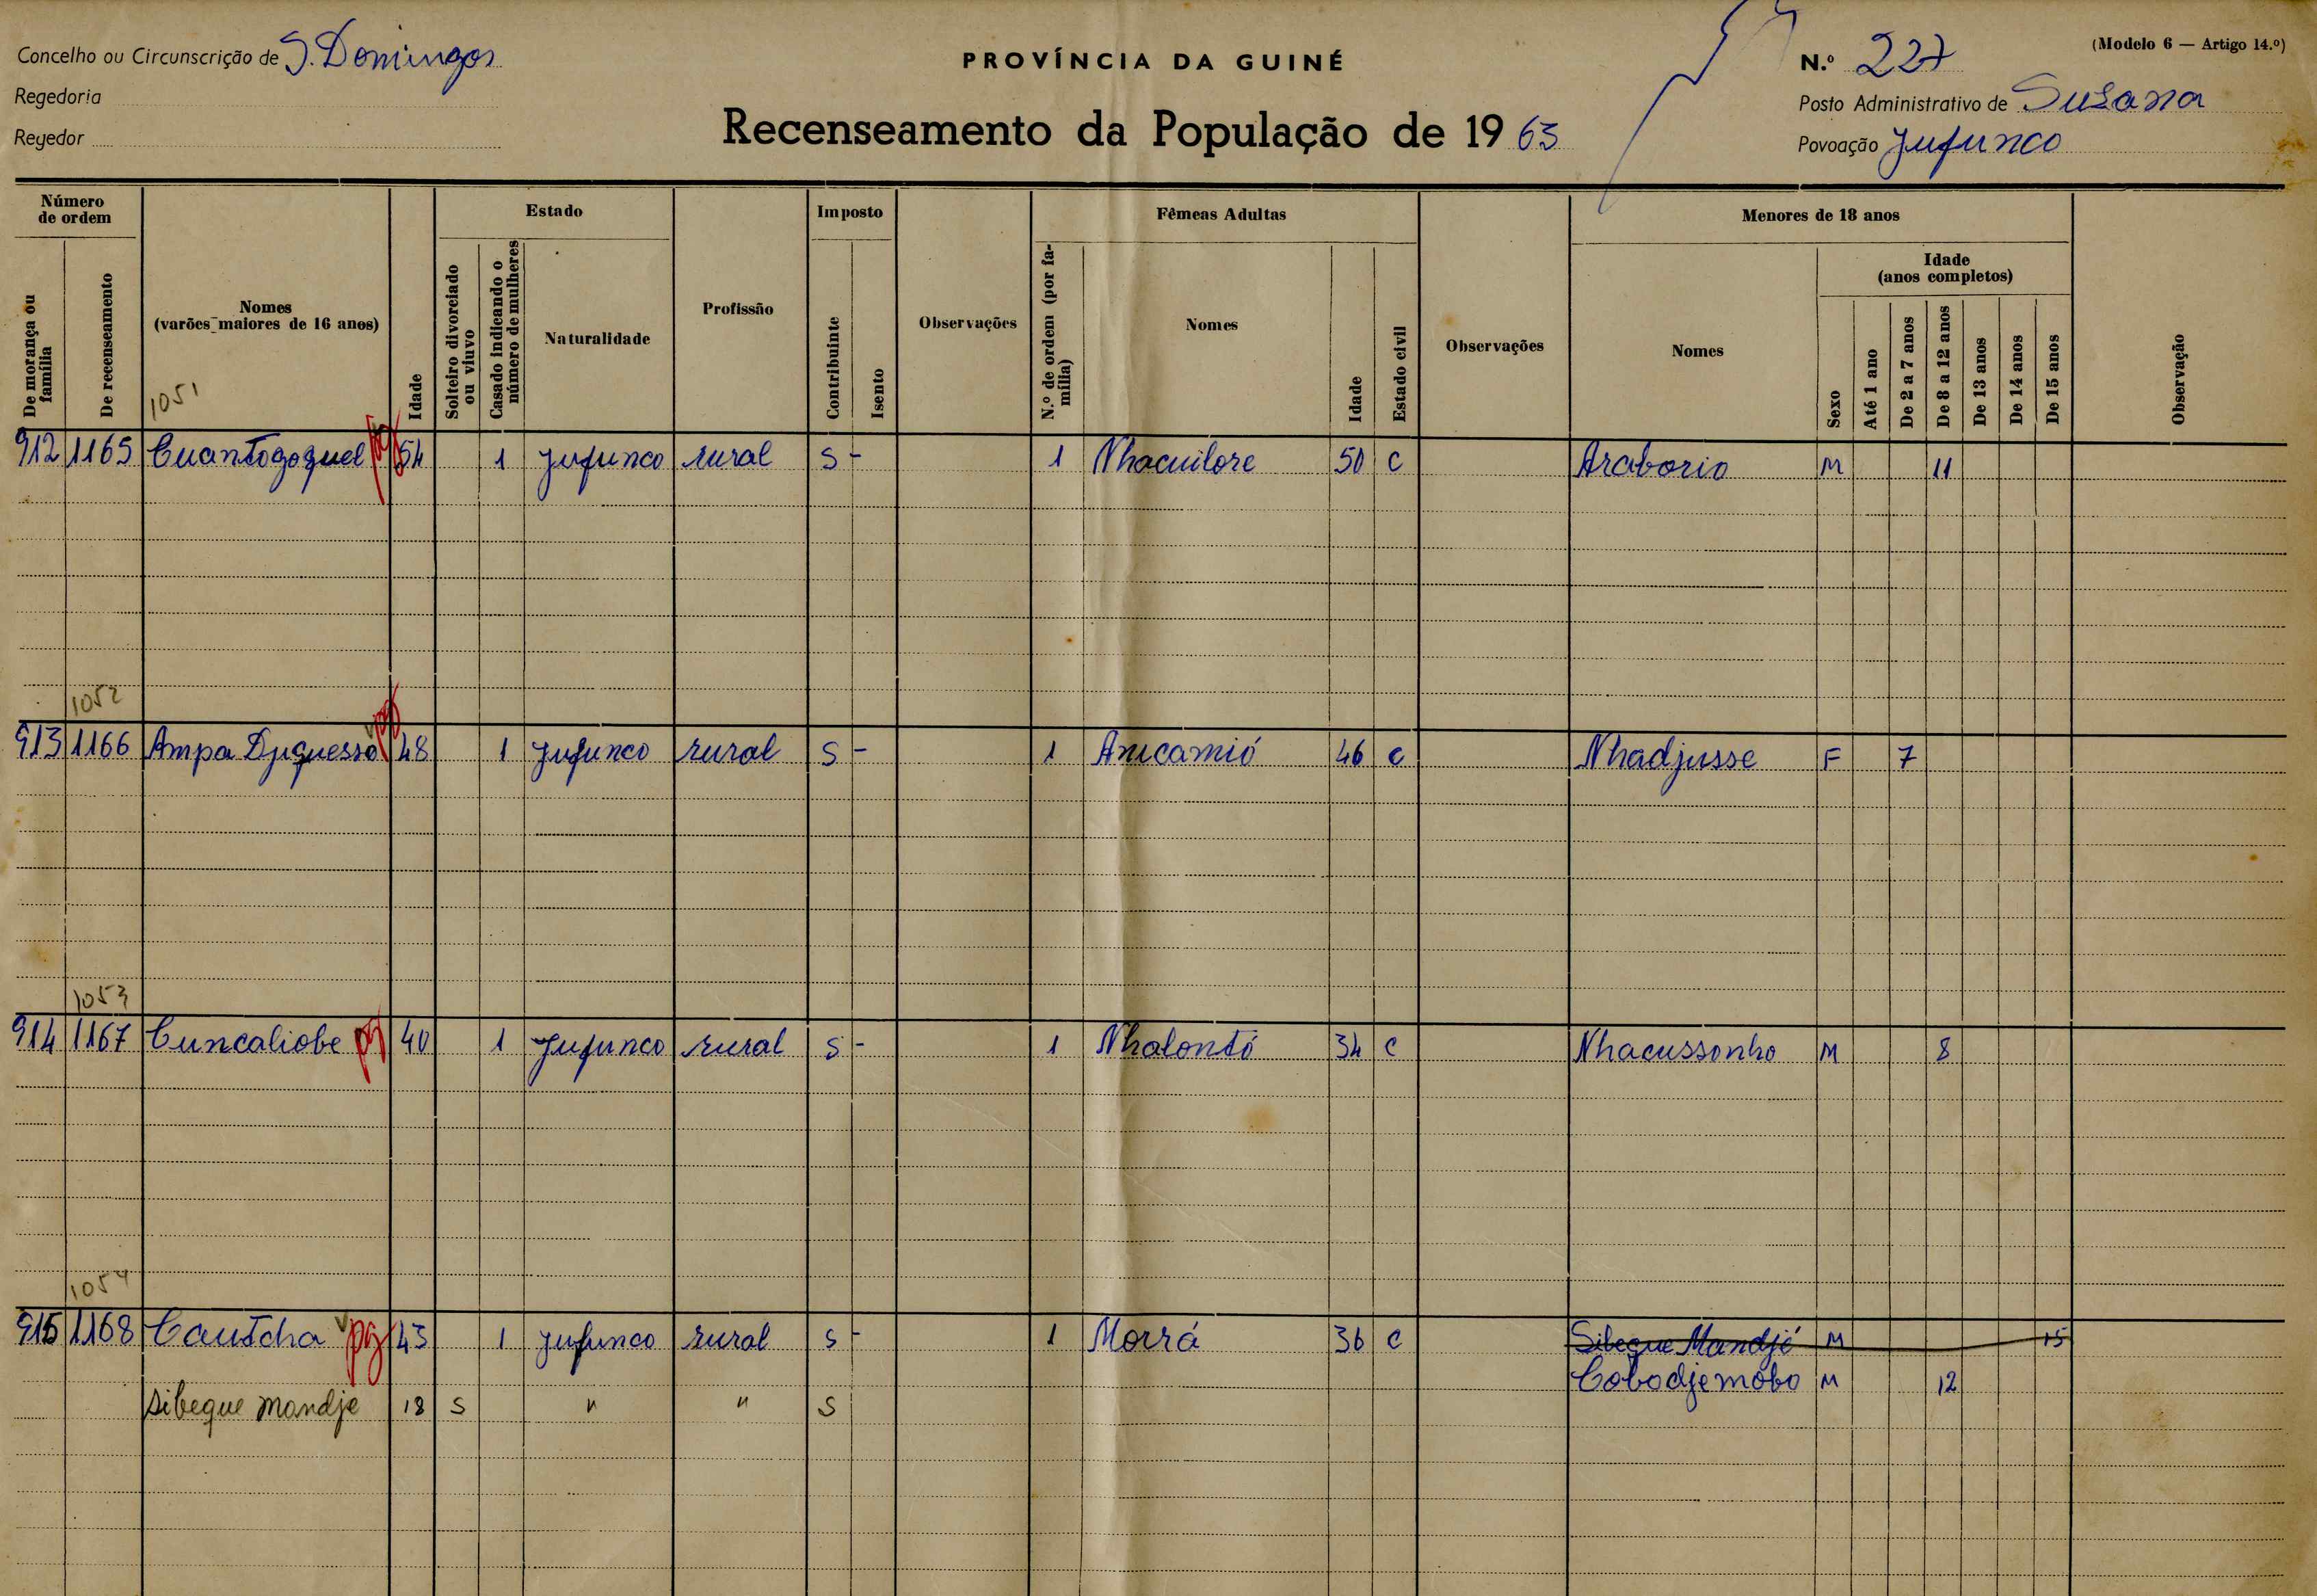 Concelho ou Circunscrição de S. Domingos
PROVÍNCIA DA GUINÉ
N.º 227
(Modelo 6 — Artigo 14.º)
Regedoria
Posto Administrativo de Susana
Regedor
Recenseamento da População de 1963
Povoação Jufunco
Número de ordem
De morança ou família
De recenseamento
Nomes (varões maiores de 16 anos)
Idade
Estado
Solteiro divorciado ou viuvo
Casado indicando o número de mulheres
Naturalidade
Profissão
Imposto
Contribuinte
Isento
Observações
Fêmeas Adultas
N.º de ordem (por família)
Nomes
Idade
Estado civil
Observações
Menores de 18 anos
Nomes
Sexo
Idade (anos completos)
Até 1 ano
De 2 a 7 anos
De 8 a 12 anos
De 13 anos
De 14 anos
De 15 anos
Observação
1051
912 1165 Cuantogoquel pg 54 1 Jufunco rural S - 1 Nhacuilore 50 C Araborio M 11
1052
913 1166 Ampa Djiquesso pg 48 1 Jufunco rural S - 1 Anucamió 46 C Nhadjusse F 7
1053
914 1167 Cuncaliobe pg 40 1 Jufunco rural S - 1 Nhalontó 34 C Nhacussonho M 8
1054
915 1168 Cautcha pg 43 1 Jufunco rural S - 1 Morrá 36 C Sibeque Mandjé M 15
Cobodjemobo M 12
Sibeque Mandje 18 S " " S